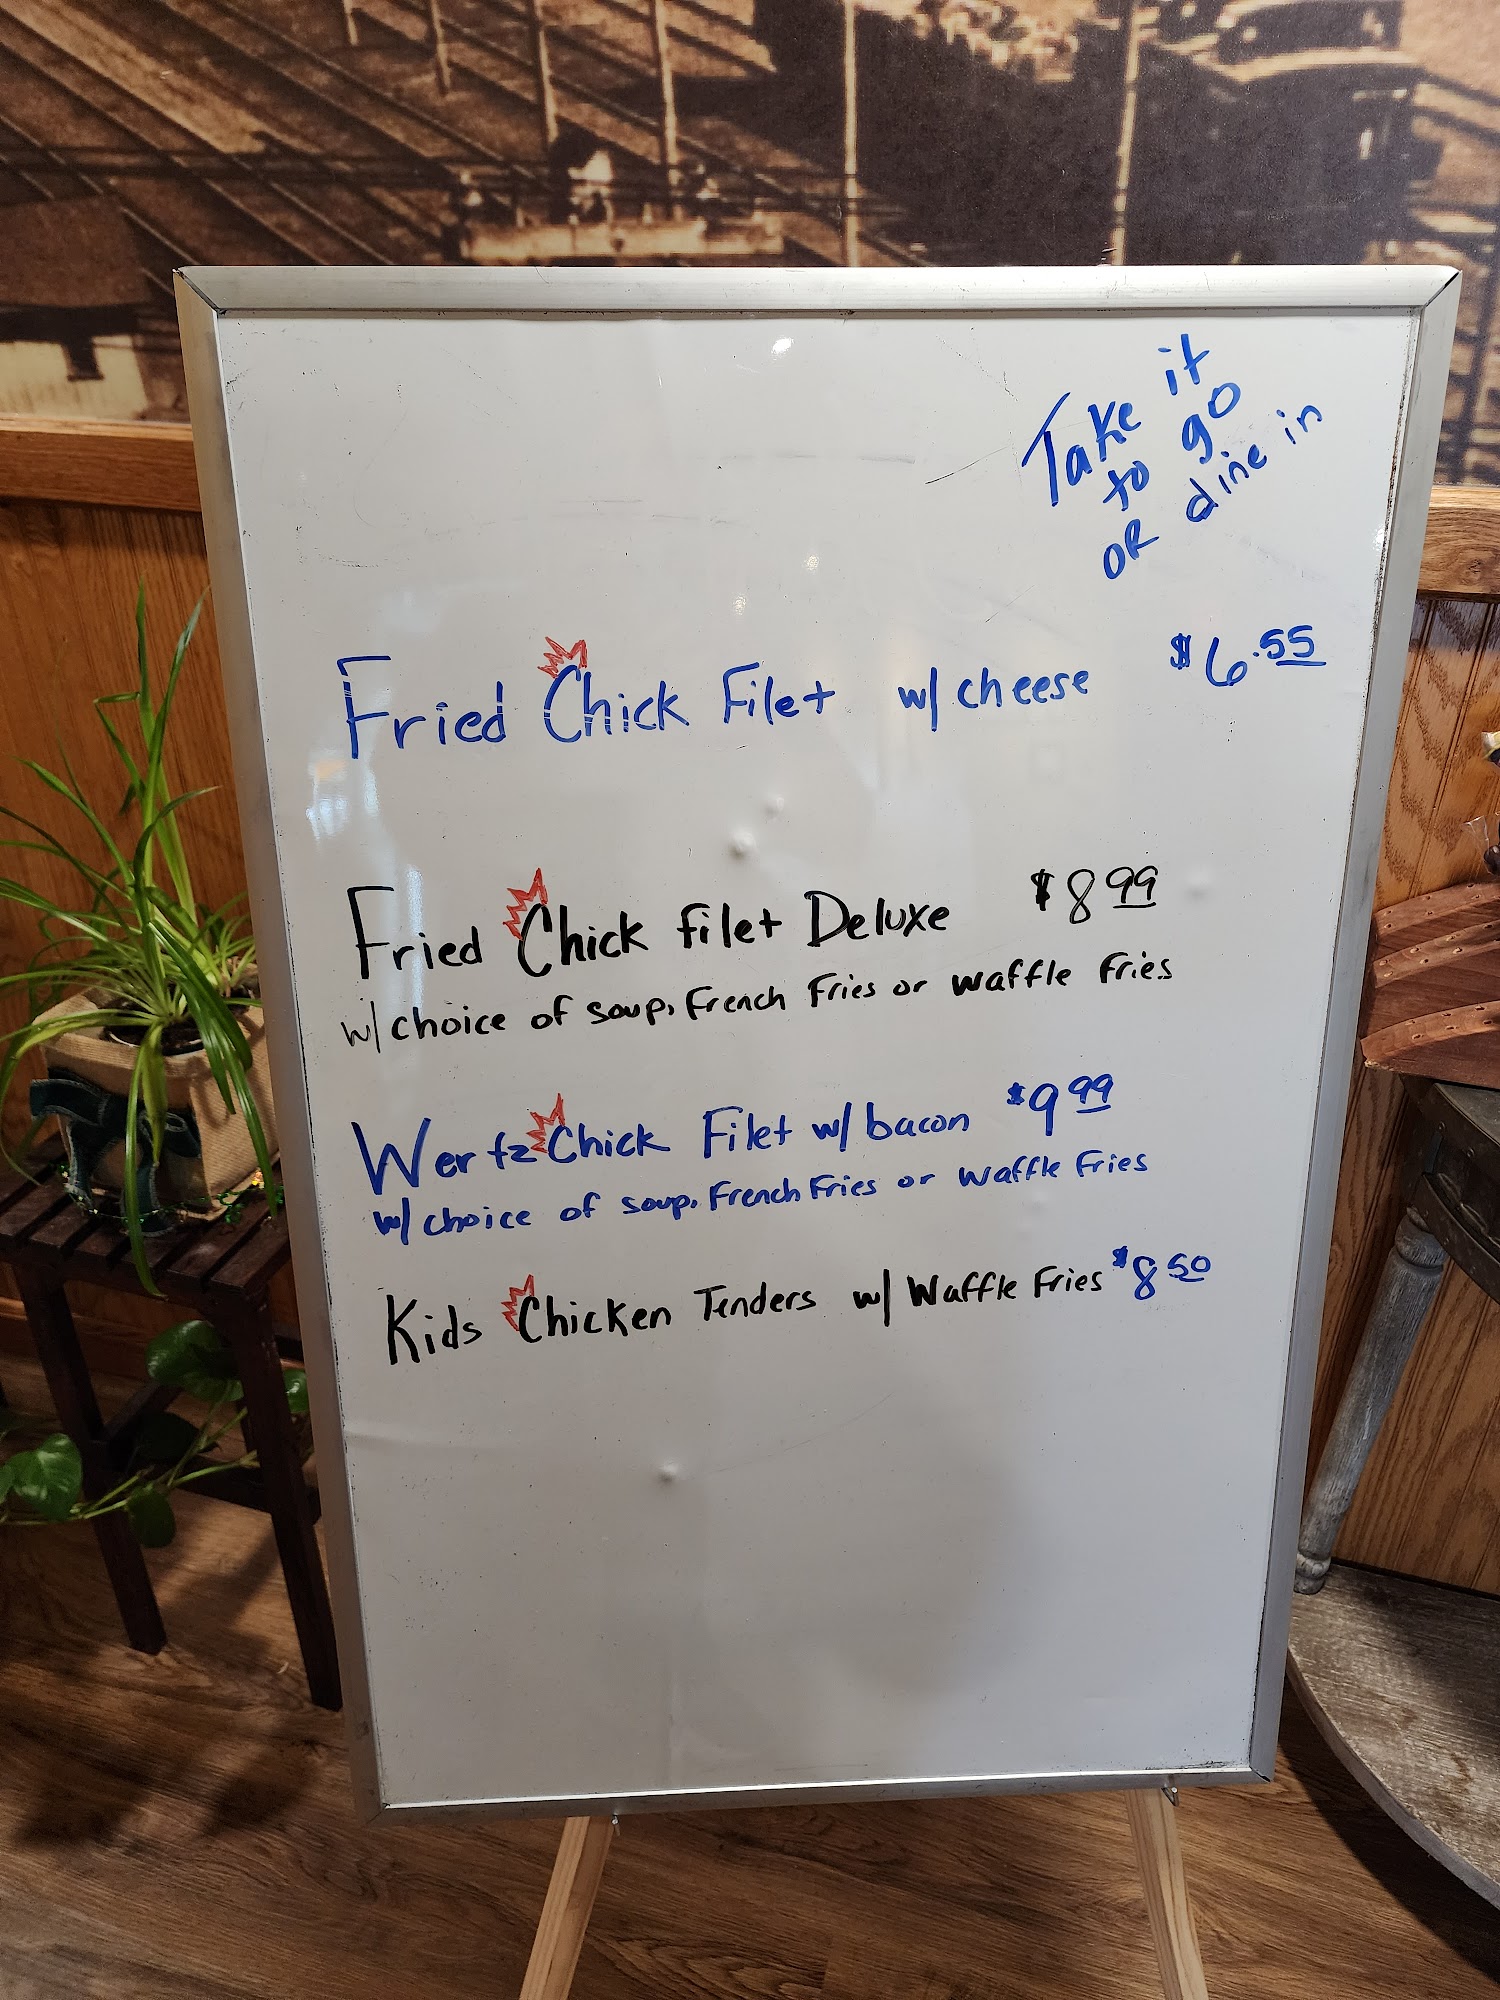 Take it
to go
OR dine in
Fried Chick Filet w/ cheese $6.55
Fried Chick filet Deluxe $8 99
w/ choice of soup, French Fries or waffle fries
Wertz Chick Filet w/ bacon $9 99
w/ choice of soup, French Fries or waffle fries
Kids Chicken Tenders w/ Waffle Fries $8 50